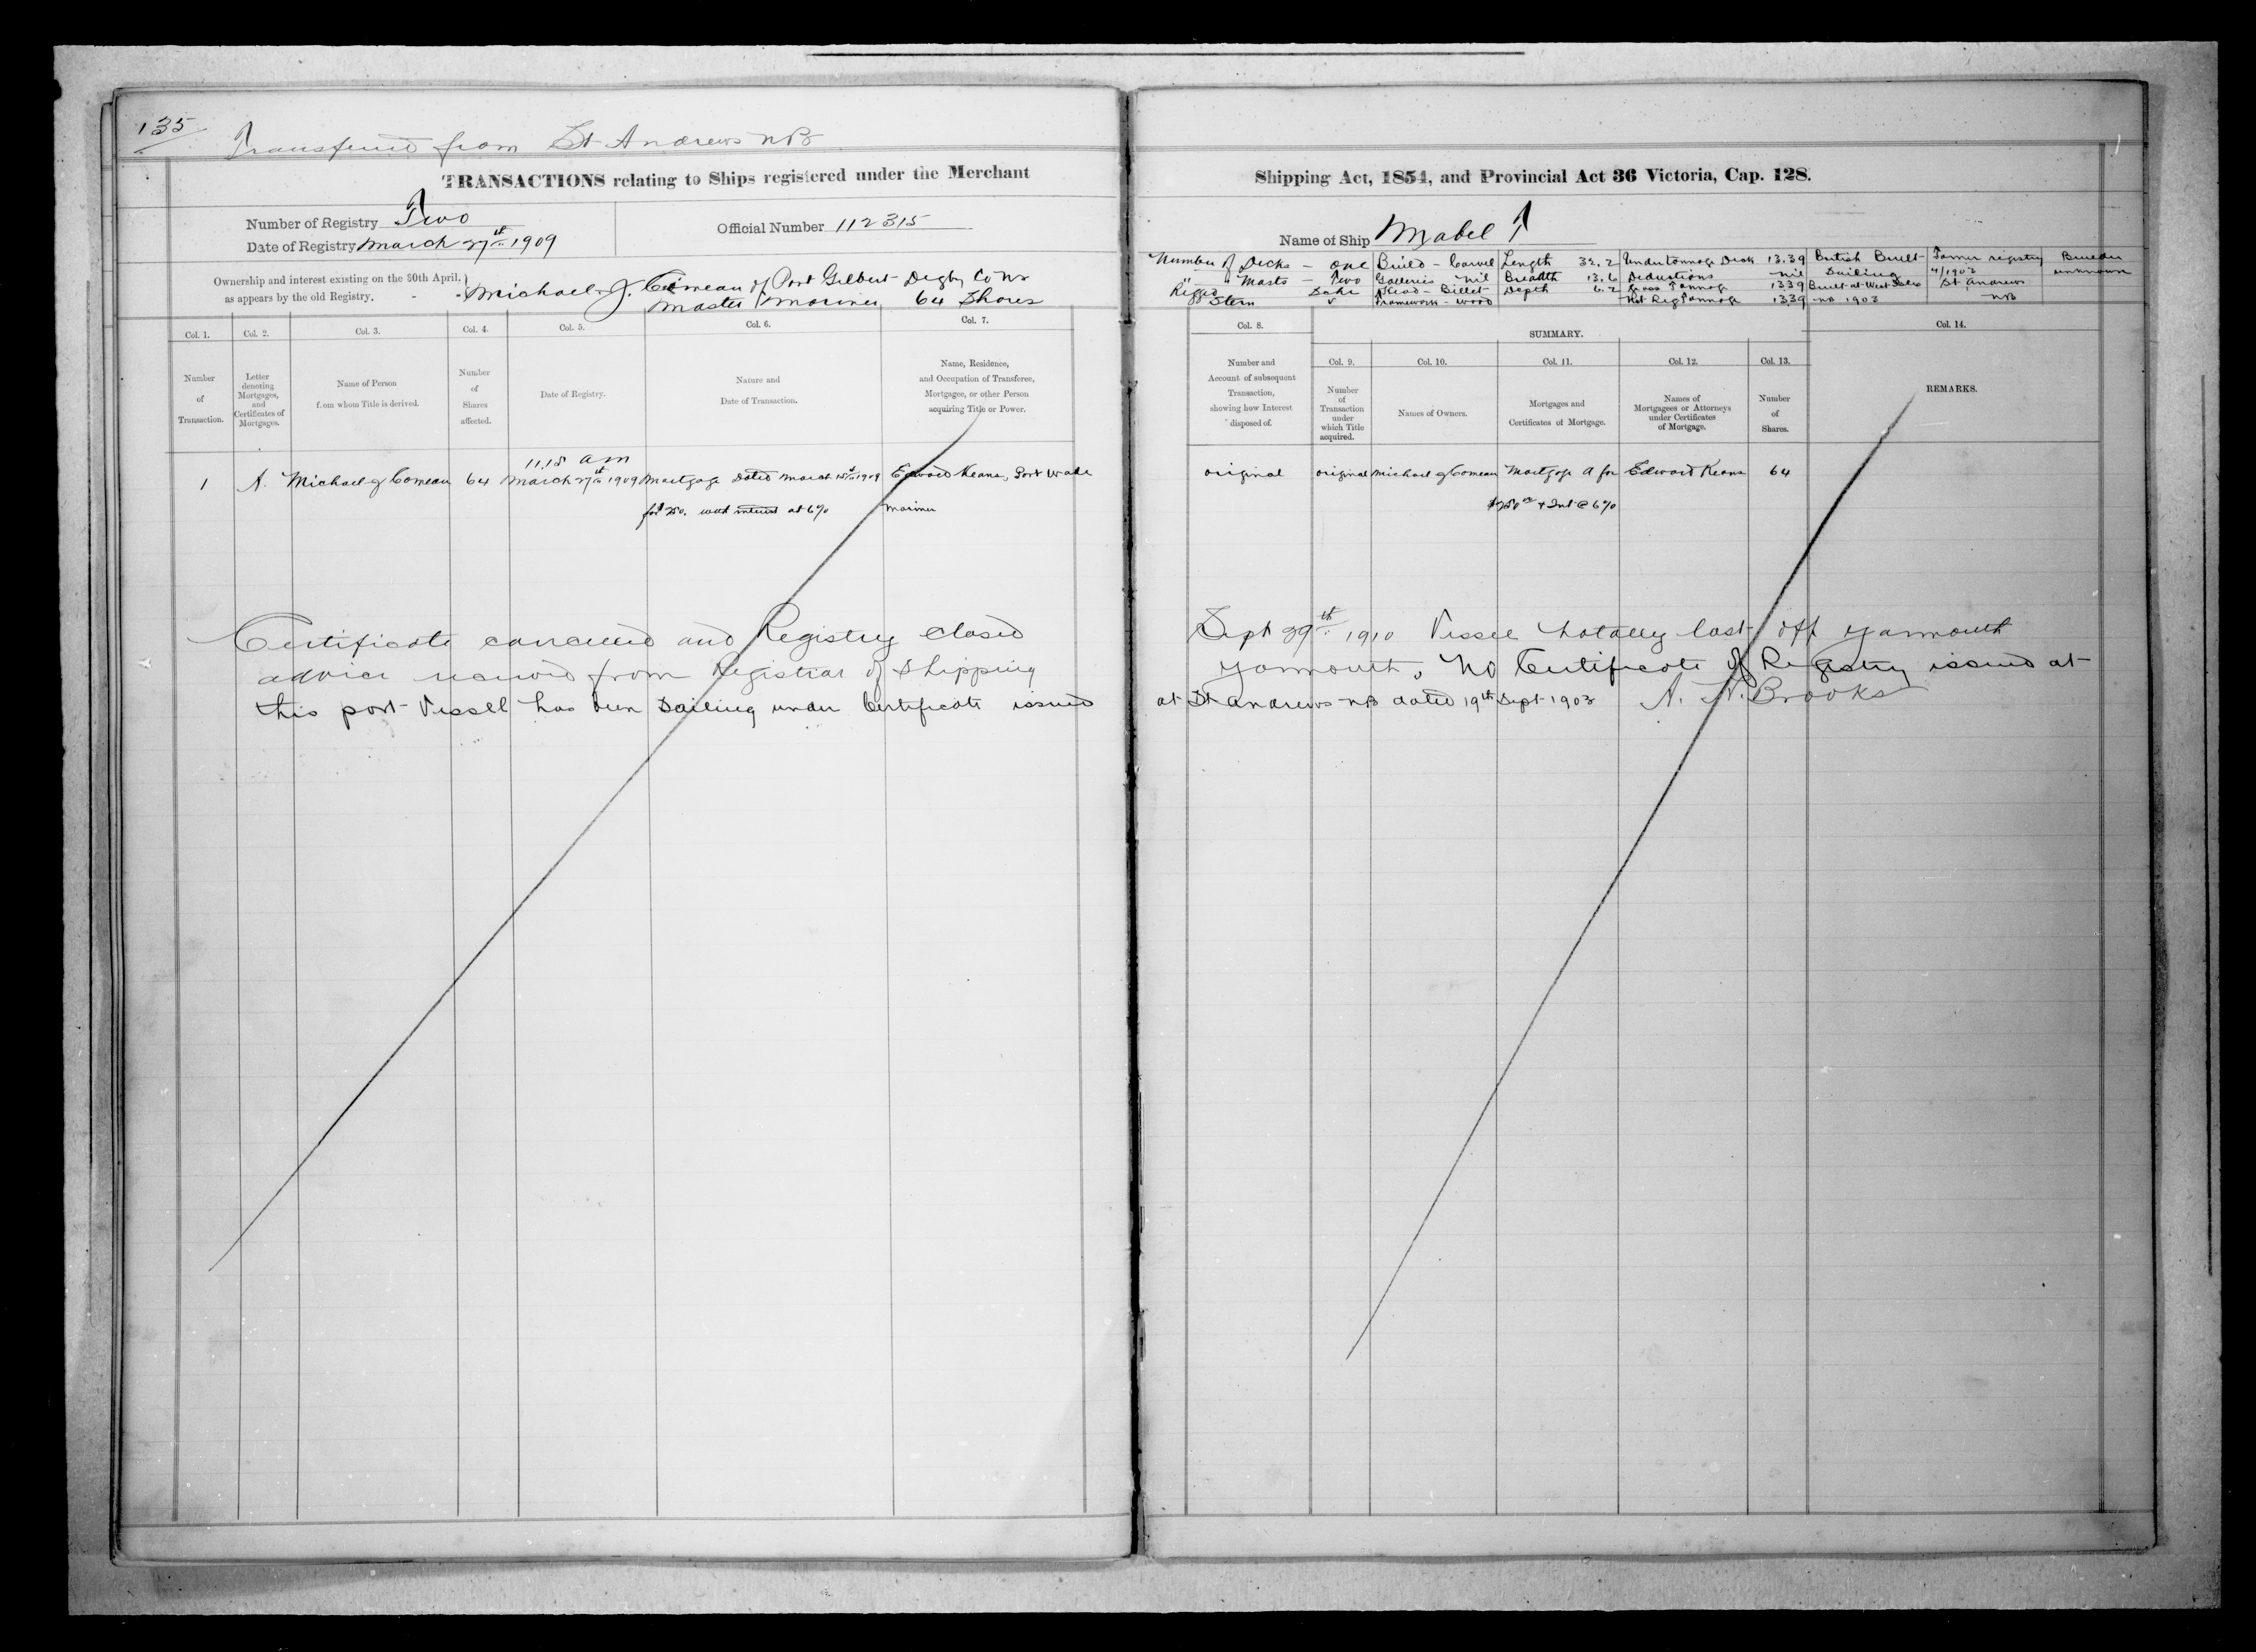 135
Transferred from St Andrews NB
TRANSACTIONS relating to Ships registered under the Merchant
Shipping Act, 1854, and Provincial Act 36 Victoria, Cap. 128.
Number of Registry Two
Official Number 112315
Date of Registry March 27th 1909
Name of Ship Mabel T
Ownership and interest existing on the 30th April, as appears by the old Registry.
Michael J. Comeau of Port Gilbert Digby Co NS
Master Mariner 64 Shares
Number of Decks - one
" " Masts - Two
Rigged Schr
Stern
Build - Carvel
Galleries Nil
Head - Billet
Framework - Wood
Length 32.2
Breadth 13.6
Depth 6.2
Under tonnage Deck 13.39
Deductions nil
Gross Tonnage 13.39
Net Reg Tonnage 13.39
British Built
Sailing
Built at West Isles
NB 1903
Former registry
4/1903
St Andrews
NB
Builder
unknown
Col. 1.
Number of Transaction.
Col. 2.
Letter denoting Mortgages, and Certificates of Mortgages.
Col. 3.
Name of Person from whom Title is derived.
Col. 4.
Number of Shares affected.
Col. 5.
Date of Registry.
Col. 6.
Nature and Date of Transaction.
Col. 7.
Name, Residence, and Occupation of Transferee, Mortgagee, or other Person acquiring Title or Power.
Col. 8.
Number and Account of subsequent Transaction, showing how Interest disposed of.
SUMMARY.
Col. 9.
Number of Transaction under which Title acquired.
Col. 10.
Names of Owners.
Col. 11.
Mortgages and Certificates of Mortgage.
Col. 12.
Names of Mortgagees or Attorneys under Certificates of Mortgage.
Col. 13.
Number of Shares.
Col. 14.
REMARKS.
11.15 am
1 A. Michael J Comeau 64 March 27th 1909 Mortgage Dated March 15th 1909 Edward Keans, Port Wade
for 250. with interest at 6% Mariner
original original Michael J Comeau Mortgage A for Edward Keans 64
$250 00 & Int @ 6%
Certificate cancelled and Registry closed Sept 29th 1910 Vessel totally lost off Yarmouth
advice received from Registrar of Shipping Yarmouth, No Certificate of Registry issued at
this port Vessel has been Sailing under Certificate issued at St Andrews NB dated 19th Sept 1903 A. N. Brooks